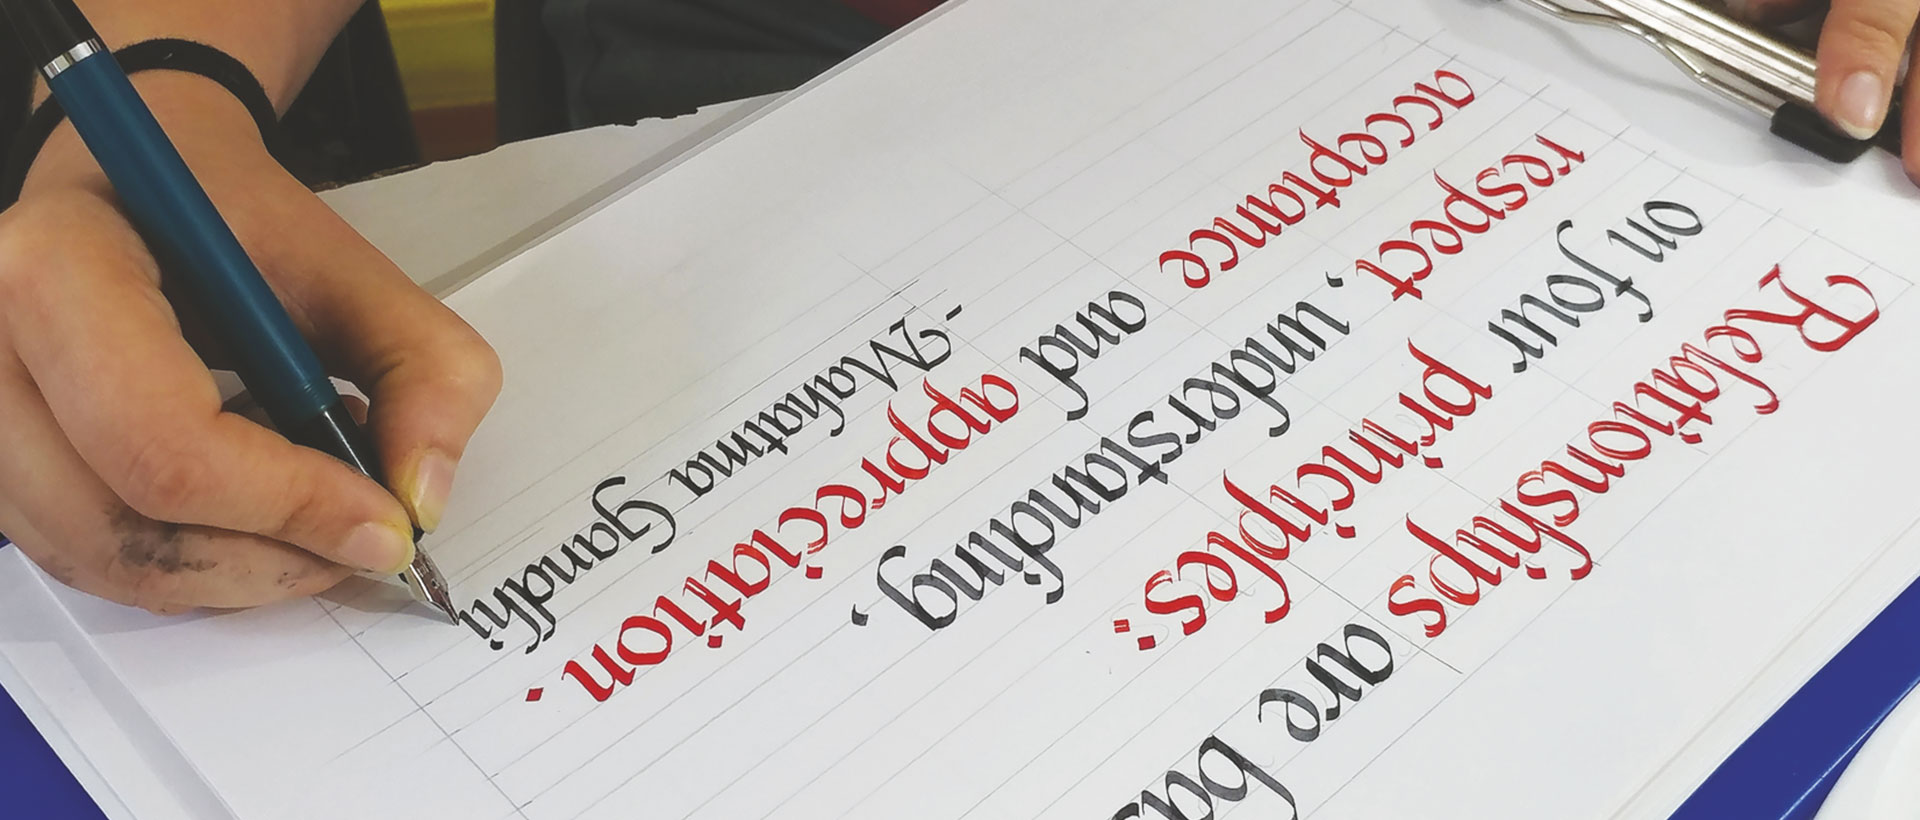 Relationships are bas
on four principles:
respect, understanding,
acceptance and appreciation.
- Mahatma Gandhi